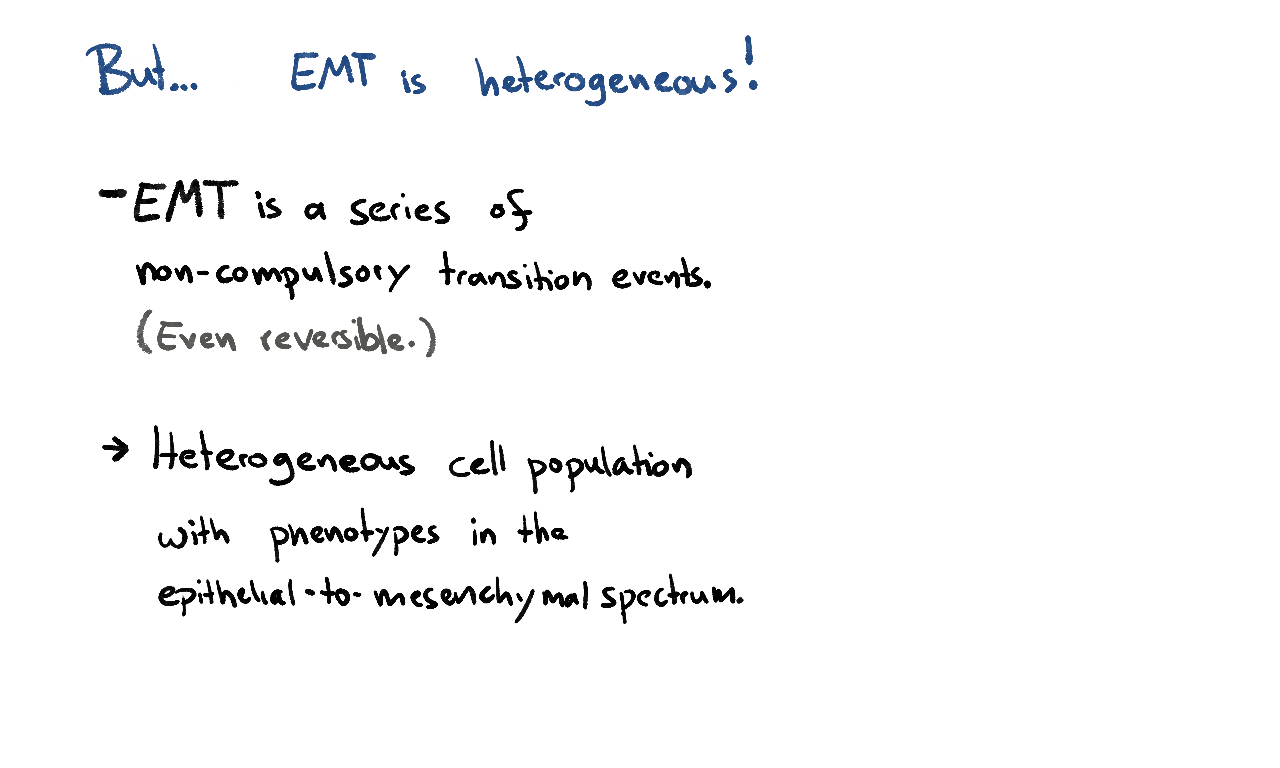 But... EMT is heterogeneous!
- EMT is a series of
non-compulsory transition events.
(Even reversible.)
→ Heterogeneous cell population
with phenotypes in the
epithelial-to-mesenchymal spectrum.